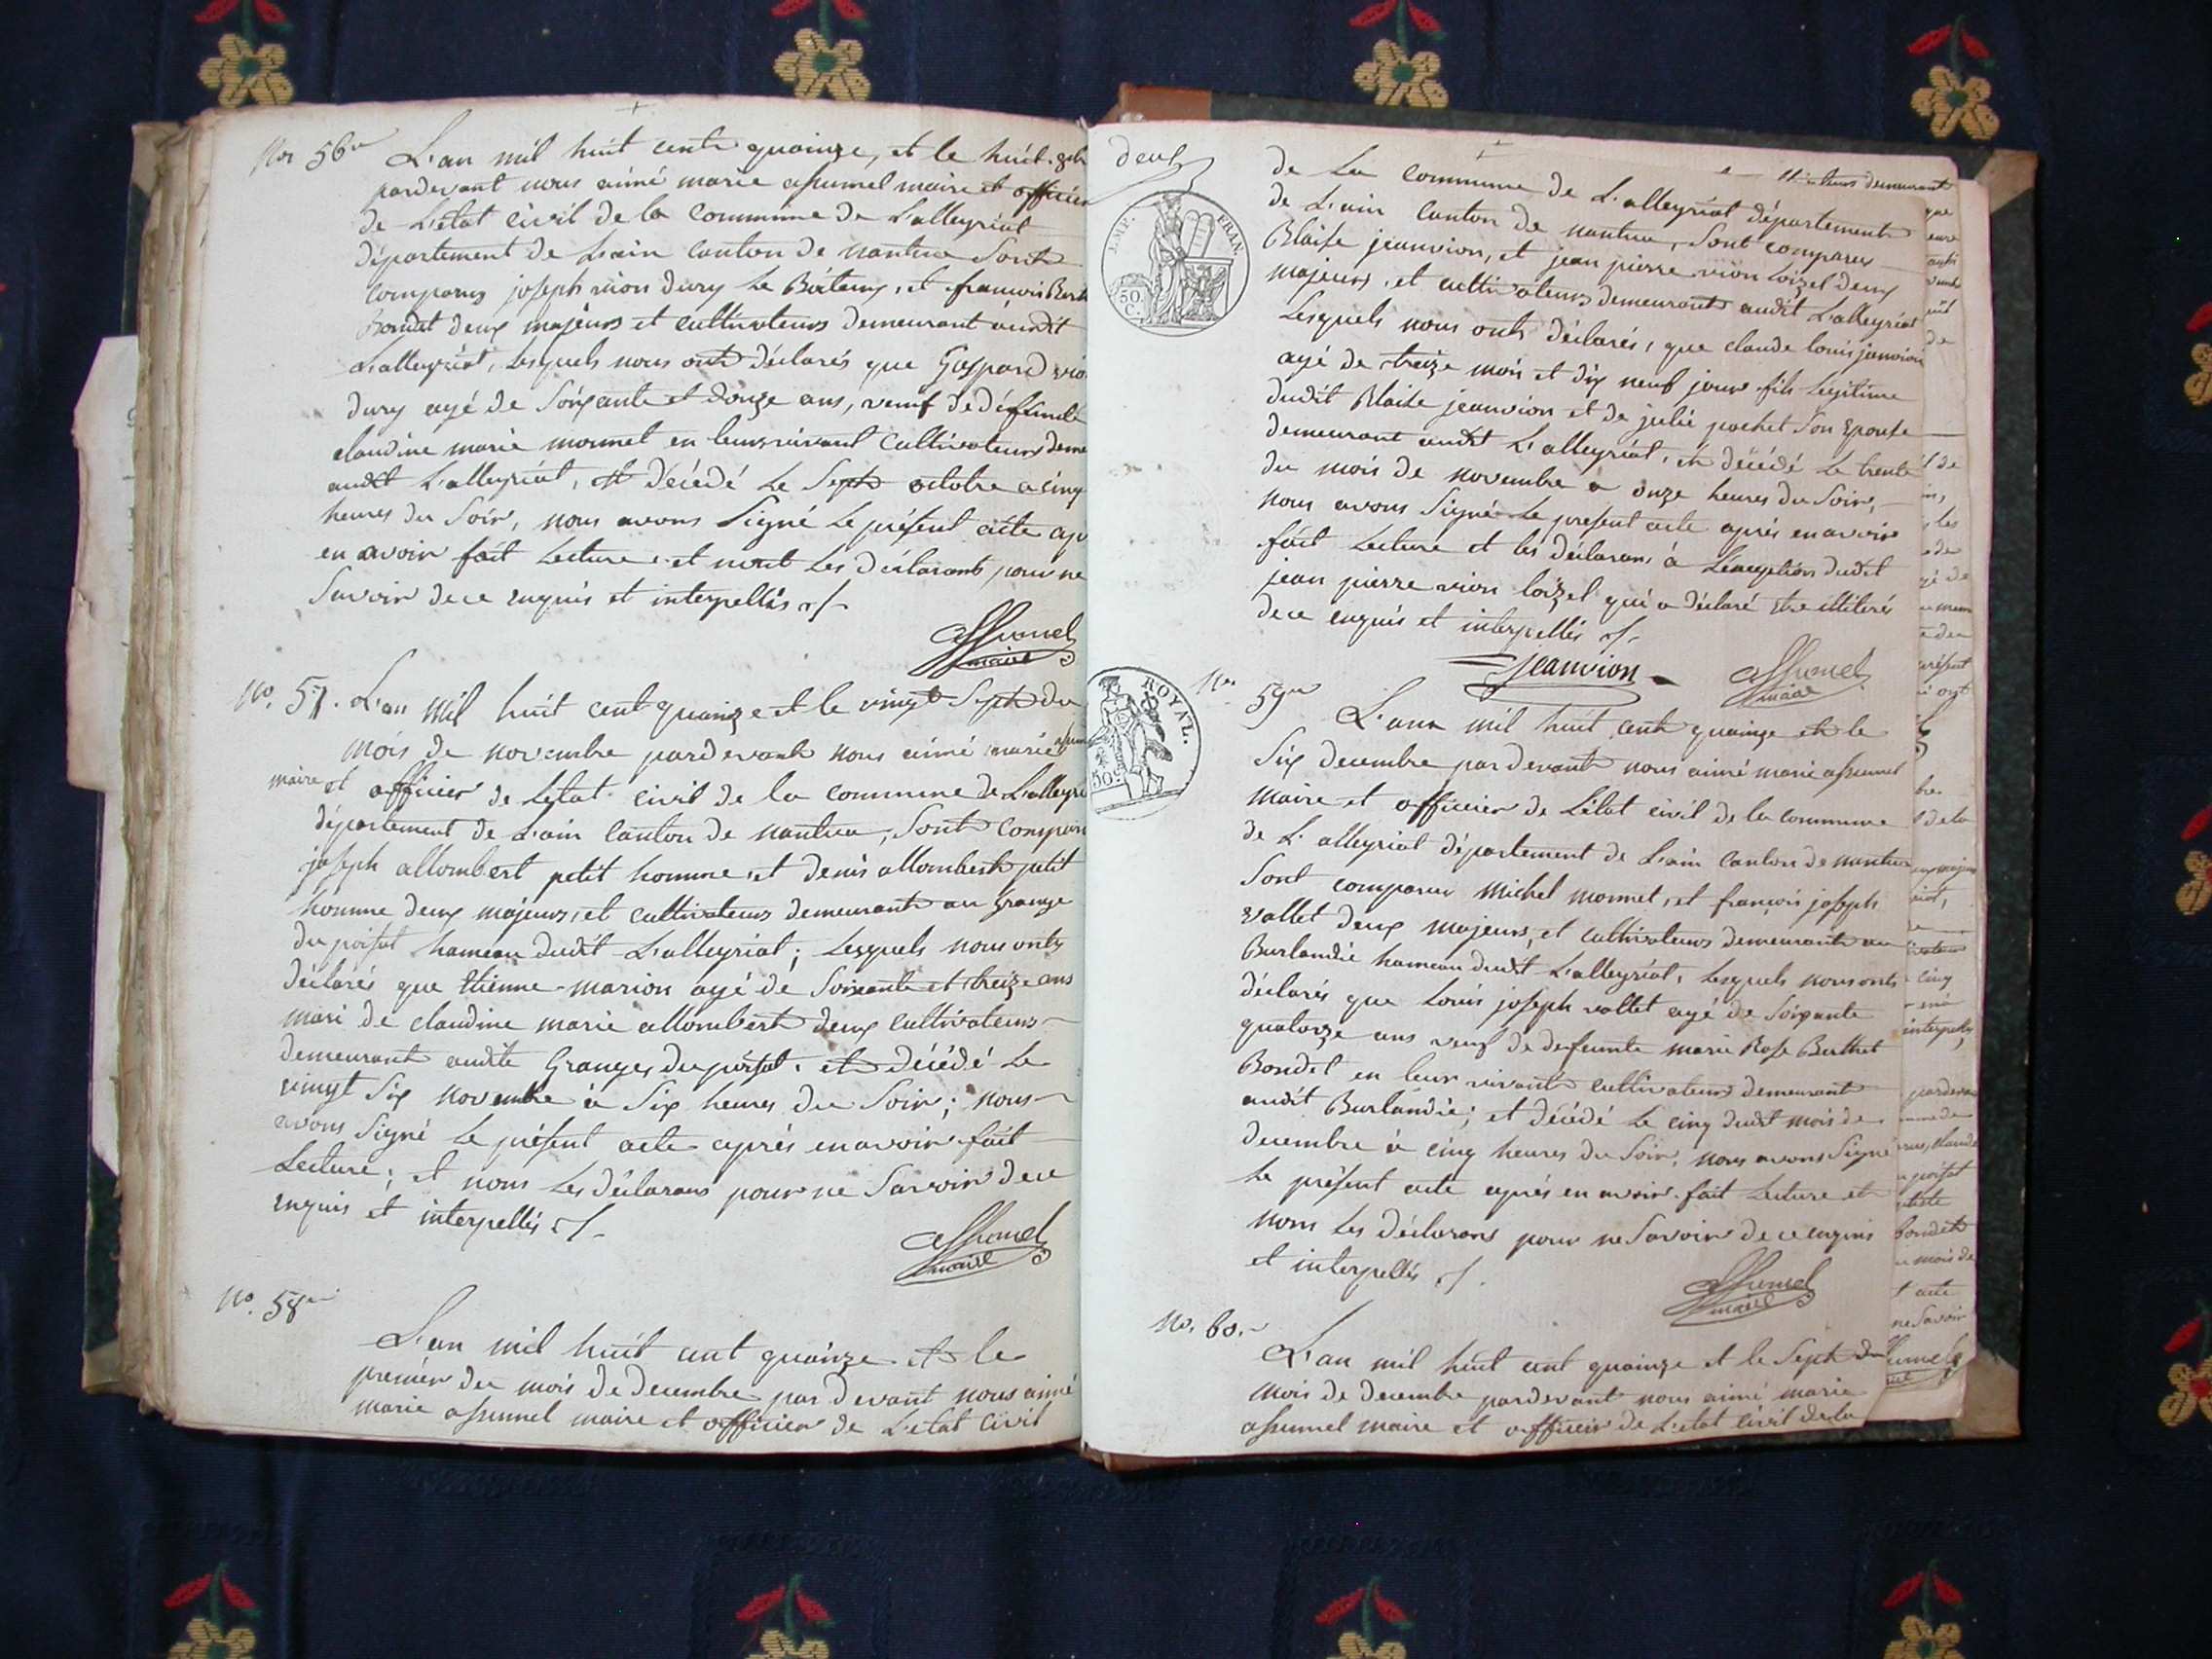 No 56e
L'an mil huit cent quainze, et le huit 8bre
pardevant nous aimé marie assumel maire et officier
de L'état civil de la commune de L'alleyriat
département de L'ain canton de nantua Sont
comparus joseph vion dury Le Boiteux, et francois Berth
Bondet deux majeurs et cultivateurs demeurant audit
L'alleyriat, Lesquels nous ont déclarés que Gaspard vio
dury agé de Soixante et douze ans, veuf de déffunte
claudine marie monnet en leurs vivant cultivateurs deme
audit L'alleyriat, et décédé Le Sept octobre a cinq
heures du Soir, nous avons Signé Le présent acte ap
en avoir fait Lecture et nont Les déclarants pour ne
Savoir de ce enquis et interpellés
assumel
maire
No. 57. L'an mil huit cent quainze et le vingt Sept du
mois de novembre pardevant nous aimé marie assum
maire et officier de L'état civil de la commune de L'alleyri
département de L'ain canton de nantua, Sont comparu
joseph allombert petit homme et denis allombert petit
homme deux majeurs, et cultivateurs demeurants au Grange
du poisat hameau dudit L'alleyriat; Lesquels nous onts
déclarés que Etienne marion agé de Soixante et treize ans
mari de claudine marie allombert deux cultivateurs
demeurant audite Granges du poisat, et décédé Le
vingt Six novembre à Six heures du Soir; nous
avons Signé Le présent acte après en avoir fait
Lecture; et nons Les déclarans pour ne Savoir de ce
enquis et interpellés
assumel
maire
No. 58e
L'an mil huit cent quainze et le
premier du mois de decembre par devant nous aimé
marie assumel maire et officier de L'etat civil
deux
IMP. FRAN.
50 C.
de La commune de L'alleyriat département
de L'ain canton de nantua, Sont comparus
Blaise jeanvion, et jean pierre vion Loizel deux
majeurs, et cultivateurs demeurants audit L'alleyriat
Lesquels nous onts déclarés, que claude louis janvion
agé de treize mois et dix neuf jours fils Légitime
dudit Blaise jeanvion et de julie pochet Son Epouse
demeurant audit L'alleyriat, et décédé Le trente
du mois de novembre a onze heures du Soir,
nous avons Signé Le present acte après en avoir
fait Lecture et les déclarans à L'exception dudit
jean pierre vion loizel qui a déclaré etre illiterés
de ce enquis et interpellés
jeanvion
assumel
maire
ROYAL.
50 C
No 59e
L'ann mil huit cent quainze et le
Six decembre par devant nous aimé marie assumel
maire et officier de L'état civil de la commune
de L'alleyriat département de L'ain canton de nantua
Sont comparus michel monnet, et françois joseph
vallet deux majeurs, et cultivateurs demeurants au
Burlandié hameau dudit L'alleyriat, Lesquels nous onts
déclarés que Louis joseph vallet agé de Soixante
quatorze ans veuf de defunte marie Rose Berthet
Bondet en leur vivant cultivateurs demeurant
audit Burlandié; et décédé Le cinq dudit mois de
decembre à cinq heures du Soir, nous avons Signé
Le présent acte après en avoir fait Lecture et
nons Les déclarans pour ne Savoir de ce enquis
et interpellés
assumel
maire
No. 60.
L'an mil huit cent quainze et le Sept du
mois de decembre pardevant nous aimé marie
assumel maire et officier de L'etat civil de la